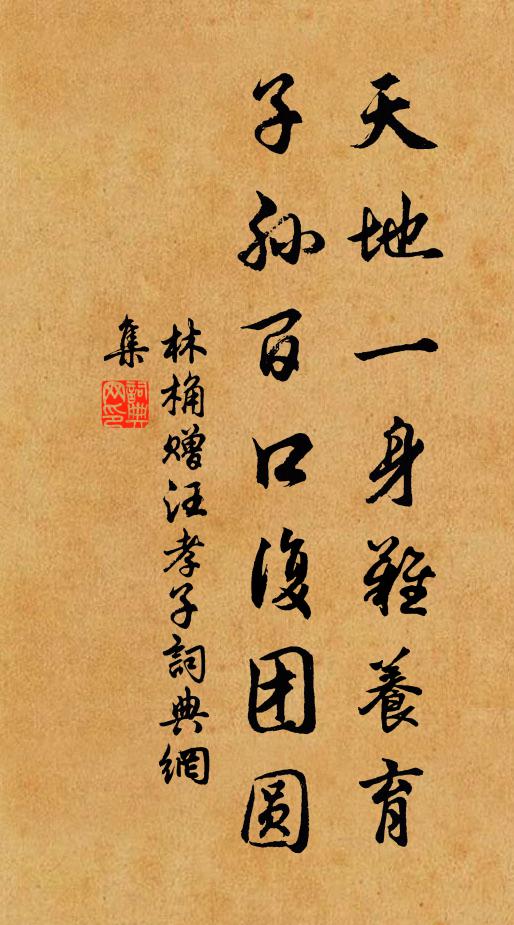 天地一身難養育
子孫百口復团圆
林桷赠汪孝子詞典網
集
詞典
网印